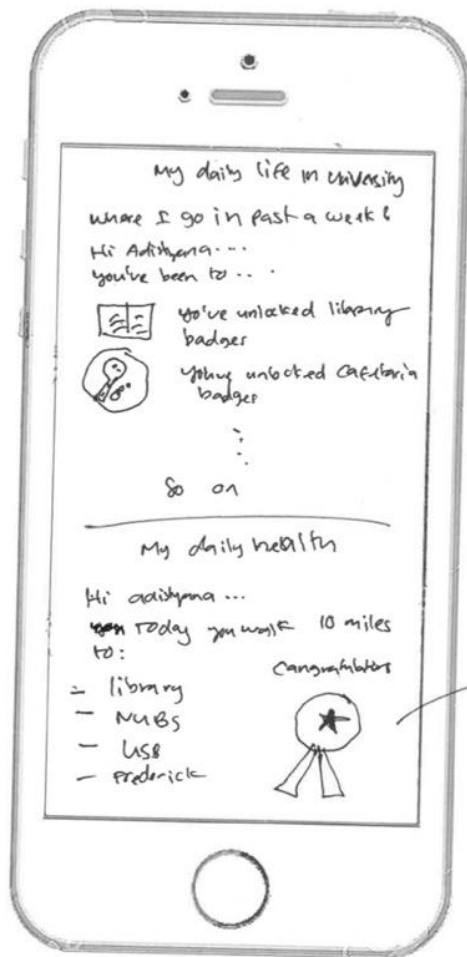 My daily life in university
where I go in past a week?
Hi Adishyana....
you've been to ....
yo've unlocked library
badges
youve unlocked cafetaria
badges
So on
My daily health
Hi adishyana ...
Today you walk 10 miles
to:
- library
- NUBS
- USB
- Frederick